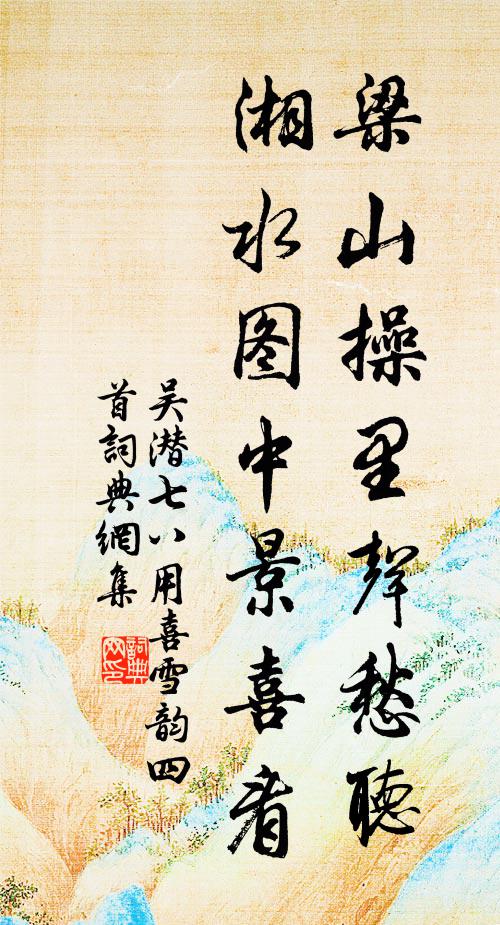 梁山操里聲愁聽
湘水图中景喜看
吴潜七八用喜雪韵四
首詞典網集
詞典
网印